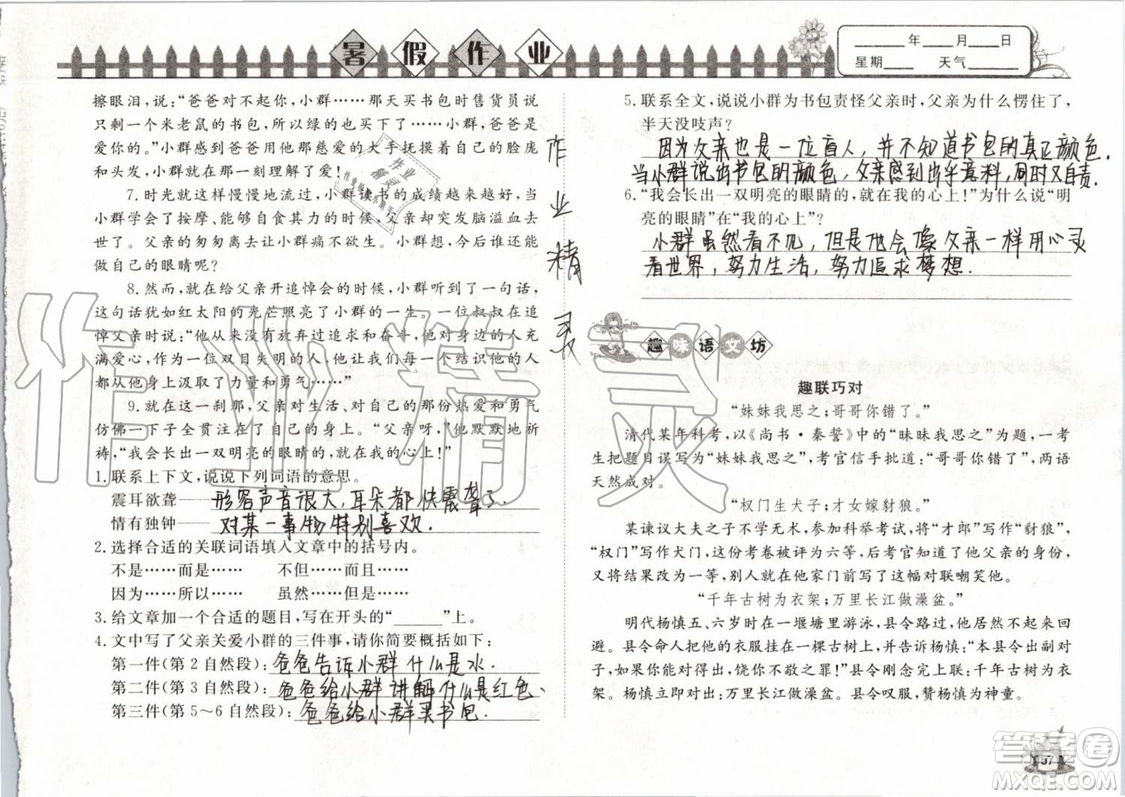 暑假作业
____年____月____日
星期____ 天气____
擦眼泪，说：“爸爸对不起你，小群……那天买书包时售货员说
只剩一个米老鼠的书包了，所以绿的也买下了……小群，爸爸是
爱你的。”小群感到爸爸用他那慈爱的大手抚摸着自己的脸庞
和头发，小群就在那一刻理解了爱！
7. 时光就这样慢慢地流过，小群读书的成绩越来越好，小
群中学会了按摩、能够自食其力的时候，父亲却突发脑溢血去
世了。父亲的匆匆离去让小群痛不欲生。小群想，今后谁还能
做自己的眼睛呢？
8. 然而，就在给父亲开追悼会的时候，小群听到了一句话，
这句话犹如红太阳的光芒照亮了小群的一生。一位叔叔在追
悼父亲时说：“他从来没有失去信心，他对身边的人充
满爱心，作为一位双目失明的人，他是我们的榜样，我们每个人
都从他身上得到了力量和勇气……”
9. 就在这一刹那，父亲对生活、对自己的那份热爱和勇气
仿佛一下子全贯注在了小群身上。“父亲，”他默默地祈
祷，“我会长出一双明亮的眼睛的，就在我的心上！”
1. 联系上下文，说说下列词语的意思。
震耳欲聋——形容声音很大，耳朵都快震聋了.
情有独钟——对某一事物特别喜欢.
2. 选择合适的关联词语填入文章中的括号内。
不是……而是…… 不但……而且……
因为……所以…… 虽然……但是……
3. 给文章加一个合适的题目，写在开头的“______”上。
4. 文中写了父亲关爱小群的三件事，请你简要概括如下：
第一件（第2自然段）：爸爸告诉小群什么是水.
第二件（第3自然段）：爸爸给小群讲解什么是红色、
第三件（第5~6自然段）：爸爸给小群买书包.
作业精灵
5. 联系全文，说说小群为书包责怪父亲时，父亲为什么愣住了，
半天没吱声？
因为父亲也是一位盲人，并不知道书包的真正颜色.
当小群说出书包的颜色，父亲感到出乎意料，同时又自责.
6. “我会长出一双明亮的眼睛的，就在我的心上！”为什么说“明
亮的眼睛”在“我的心上”？
小群虽然看不见，但是他会像父亲一样用心灵
看世界，努力生活，努力追求梦想.
趣味语文坊
趣联巧对
“妹妹我思之；哥哥你错了。”
清代某年科考，以《尚书·秦誓》中的“昧昧我思之”为题，一考
生把题目误写为“妹妹我思之”，考官信手批道：“哥哥你错了”，两语
天然成对。
“权门生犬子；才女嫁豺狼。”
某谏议大夫之子不学无术，参加科举考试，将“才郎”写作“豺狼”，
“权门”写作犬门，这份考卷被评为六等，后考官念及他父亲的身份，
又将结果改为一等，别人就在他家门前写了这幅对联嘲笑他。
“千年古树为衣架；万里长江做澡盆。”
明代杨慎五、六岁时在一堰塘里游泳，县令路过，他也不起来回
避。县令命人把他的衣服挂在一棵古树上，并告诉杨慎：“本县令出副
对子，如果你能对得出，饶你不敬之罪！”县令刚念完上联：千年古树为衣
架。杨慎立即对出：万里长江做澡盆。县令叹服，赞杨慎为神童。
57
作业精灵
答案卷
MXQE.COM